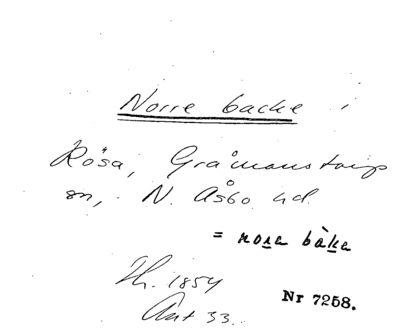 Norre backe
Rösa, Gråmanstorp
sn, N. Åsbo hd.
= nora bàka
Th. 1854
Ant 33.
Nr 7258.